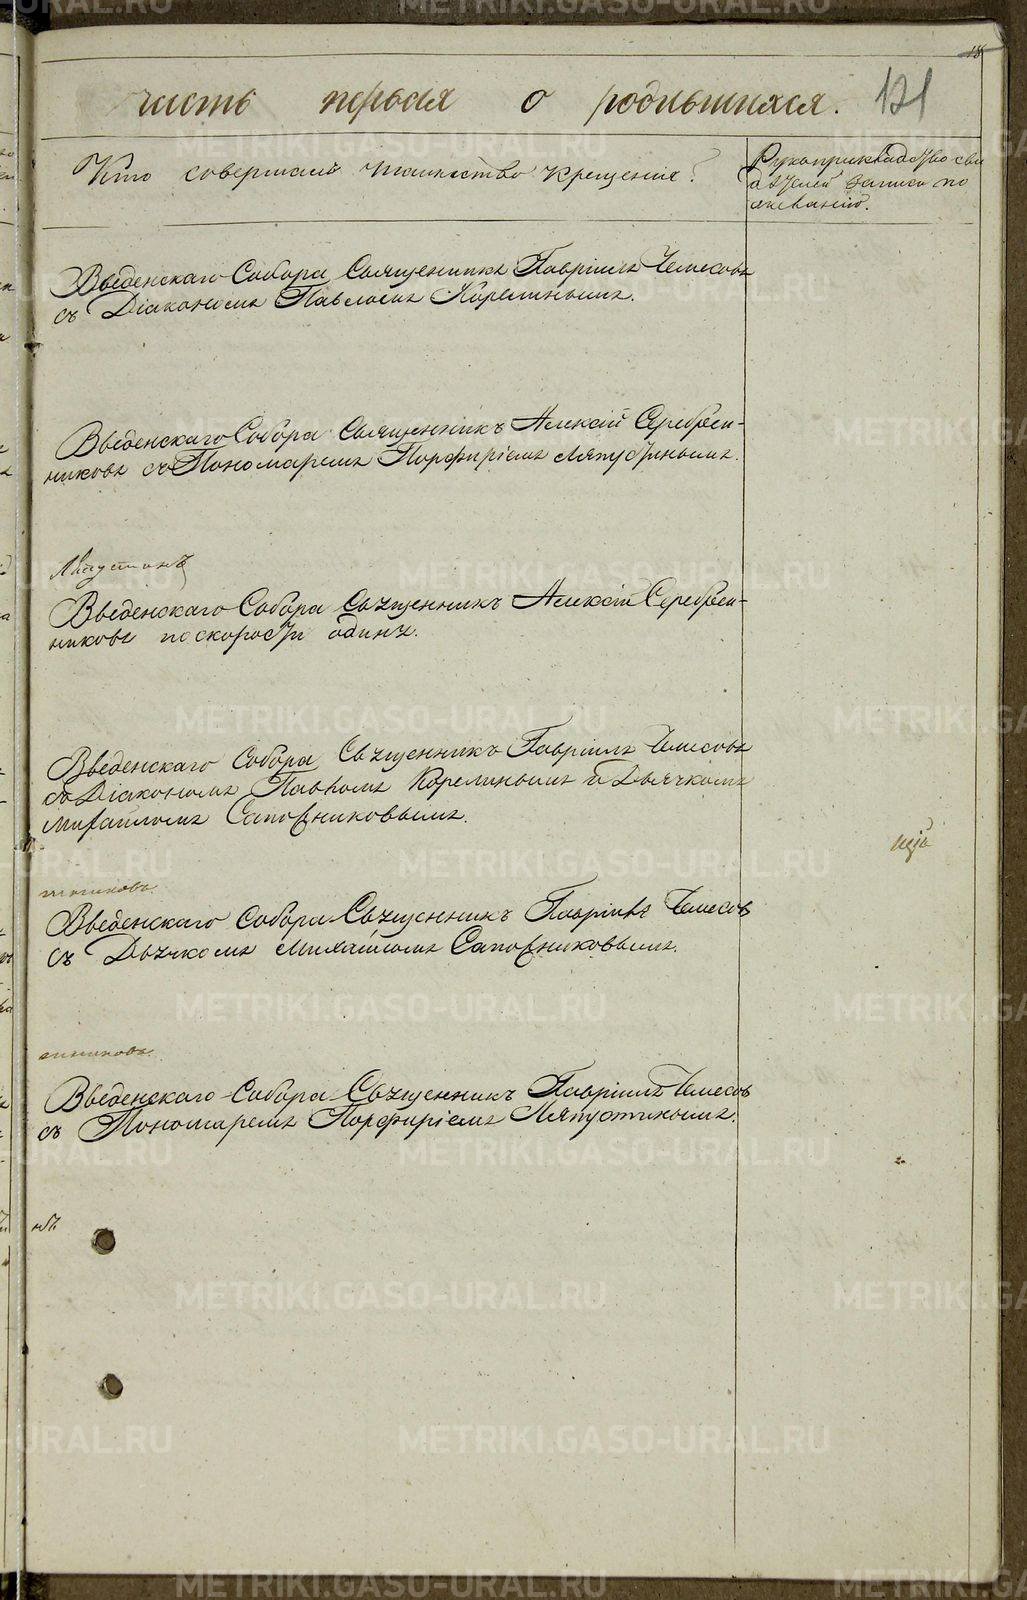 часть первая о родившихся. 121
Кто совершалъ таинство крещенія?
Рукоприкладство сви
дѣтелей записи по
желанію.
Введенскаго Собора Священникъ Гавріилъ Чемесовъ
съ Діакономъ Павломъ Корелинымъ.
Введенскаго Собора Священникъ Алексій Серебрен-
никовъ съ Пономаремъ Порфиріемъ Ляпустинымъ.
Введенскаго Собора Священникъ Алексій Серебрен-
никовъ по скорости одинъ.
Введенскаго Собора Священникъ Гавріилъ Чемесовъ
съ Діакономъ Павломъ Корелинымъ и Дьячкомъ
Михаиломъ Сапожниковымъ.
Введенскаго Собора Священникъ Гавріилъ Чемесовъ
съ Дьячкомъ Михаиломъ Сапожниковымъ.
Введенскаго Собора Священникъ Гавріилъ Чемесовъ
съ Пономаремъ Порфиріемъ Ляпустинымъ.
METRIKI.GASO-URAL.RU